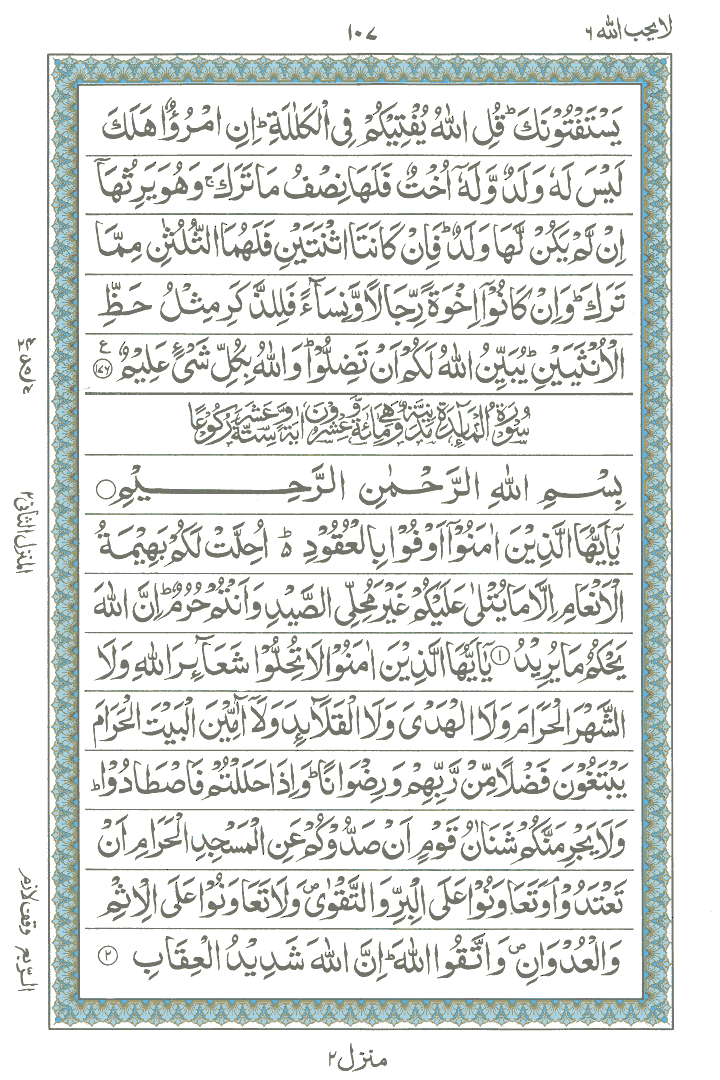 لا یحب الله ۶
۱۰۷
يَسْتَفْتُوْنَكَ ؕ قُلِ اللّٰهُ يُفْتِيْكُمْ فِى الْكَلٰلَةِ ؕ اِنِ امْرُؤٌا هَلَكَ
لَيْسَ لَهٗ وَلَدٌ وَّلَهٗۤ اُخْتٌ فَلَهَا نِصْفُ مَا تَرَكَ ۚ وَهُوَ يَرِثُهَاۤ
اِنْ لَّمْ يَكُنْ لَّهَا وَلَدٌ ؕ فَاِنْ كَانَتَا اثْنَتَيْنِ فَلَهُمَا الثُّلُثٰنِ مِمَّا
تَرَكَ ؕ وَاِنْ كَانُوْۤا اِخْوَةً رِّجَالًا وَّنِسَآءً فَلِلذَّكَرِ مِثْلُ حَظِّ
الْاُنْثَيَيْنِ ؕ يُبَيِّنُ اللّٰهُ لَكُمْ اَنْ تَضِلُّوْا ؕ وَاللّٰهُ بِكُلِّ شَىْءٍ عَلِيْمٌ ﴿۱۷۶﴾ ع
سُوْرَةُ الْمَآئِدَةِ مَدَنِيَّةٌ وَّهِيَ مِائَةٌ وَّعِشْرُوْنَ اٰيَةً وَّسِتَّةَ عَشَرَ رُكُوْعًا
بِسْمِ اللّٰهِ الرَّحْمٰنِ الرَّحِيْمِ ○
يٰۤاَيُّهَا الَّذِيْنَ اٰمَنُوْۤا اَوْفُوْا بِالْعُقُوْدِ ۵ؕ اُحِلَّتْ لَكُمْ بَهِيْمَةُ
الْاَنْعَامِ اِلَّا مَا يُتْلٰى عَلَيْكُمْ غَيْرَ مُحِلِّى الصَّيْدِ وَاَنْتُمْ حُرُمٌ ؕ اِنَّ اللّٰهَ
يَحْكُمُ مَا يُرِيْدُ ﴿۱﴾ يٰۤاَيُّهَا الَّذِيْنَ اٰمَنُوْا لَا تُحِلُّوْا شَعَآئِرَ اللّٰهِ وَلَا
الشَّهْرَ الْحَرَامَ وَلَا الْهَدْىَ وَلَا الْقَلَآئِدَ وَلَاۤ آٰمِّيْنَ الْبَيْتَ الْحَرَامَ
يَبْتَغُوْنَ فَضْلًا مِّنْ رَّبِّهِمْ وَرِضْوَانًا ؕ وَاِذَا حَلَلْتُمْ فَاصْطَادُوْا ؕ
وَلَا يَجْرِمَنَّكُمْ شَنَاٰنُ قَوْمٍ اَنْ صَدُّوْكُمْ عَنِ الْمَسْجِدِ الْحَرَامِ اَنْ
تَعْتَدُوْا ۘ وَتَعَاوَنُوْا عَلَى الْبِرِّ وَالتَّقْوٰى ۪ وَلَا تَعَاوَنُوْا عَلَى الْاِثْمِ
وَالْعُدْوَانِ ۪ وَاتَّقُوا اللّٰهَ ؕ اِنَّ اللّٰهَ شَدِيْدُ الْعِقَابِ ﴿۲﴾
المنزل الثانی ۲
الربع
وقف لازم
منزل ۲